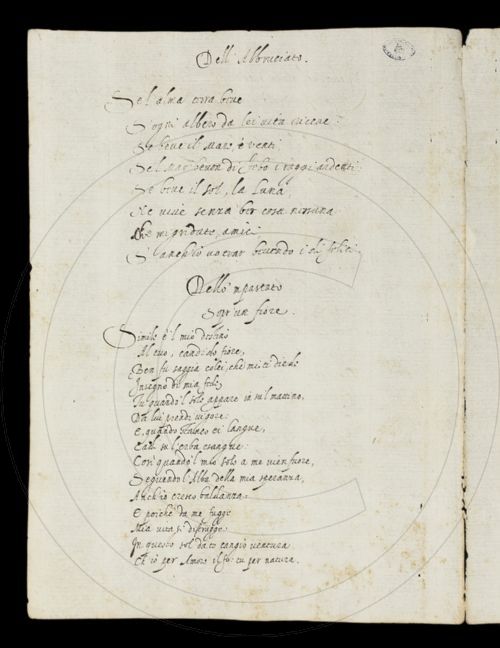 Dell' Abbruciato.
Se l'alma terra beve
S'ogni albero da lei vita riceve:
Se beve il Mare, e venti
Se l Mar bevon di febo i raggi ardenti
Se beve il sol, la luna,
Ne vive senza ber cosa nissuna
Che mi gridate amici
S'anch'io vo trar bevendo i dì felici.
Dello 'mparento
Sopr' un fiore.
Simile è l mio destino
Al tuo, candido fiore,
Ben fu saggia colei, che mi ti diede
Insegno di mia fede
Tu quando 'l sole appare in sul mattino,
Da lui prendi vigore:
E quando stanco ei langue,
Cadi su l'erba esangue:
Così quando 'l mio sole a me vien fuore,
Seguendo l'Alba della mia speranza,
Anch'io cresco baldanza:
E poiche da me fugge
Mia vita si distrugge
In questo sol dato cangio ventura
Ch' io per Amore il fo: tu per natura.